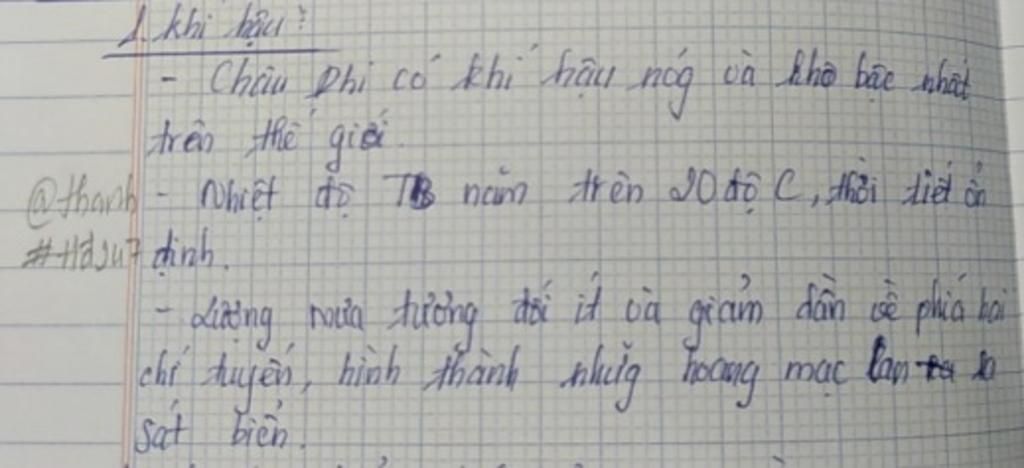 1. Khí hậu:
- Châu Phi có khí hậu nóg và khô bậc nhất
trên thế giới.
@thanh - Nhiệt độ TB năm trên 20 độ C, thời tiết ổn
#Hd247 định.
- Lượng mưa tương đối ít và giảm dần về phía hai
chí tuyến, hình thành nhữg hoang mạc lan ra
sát biển.